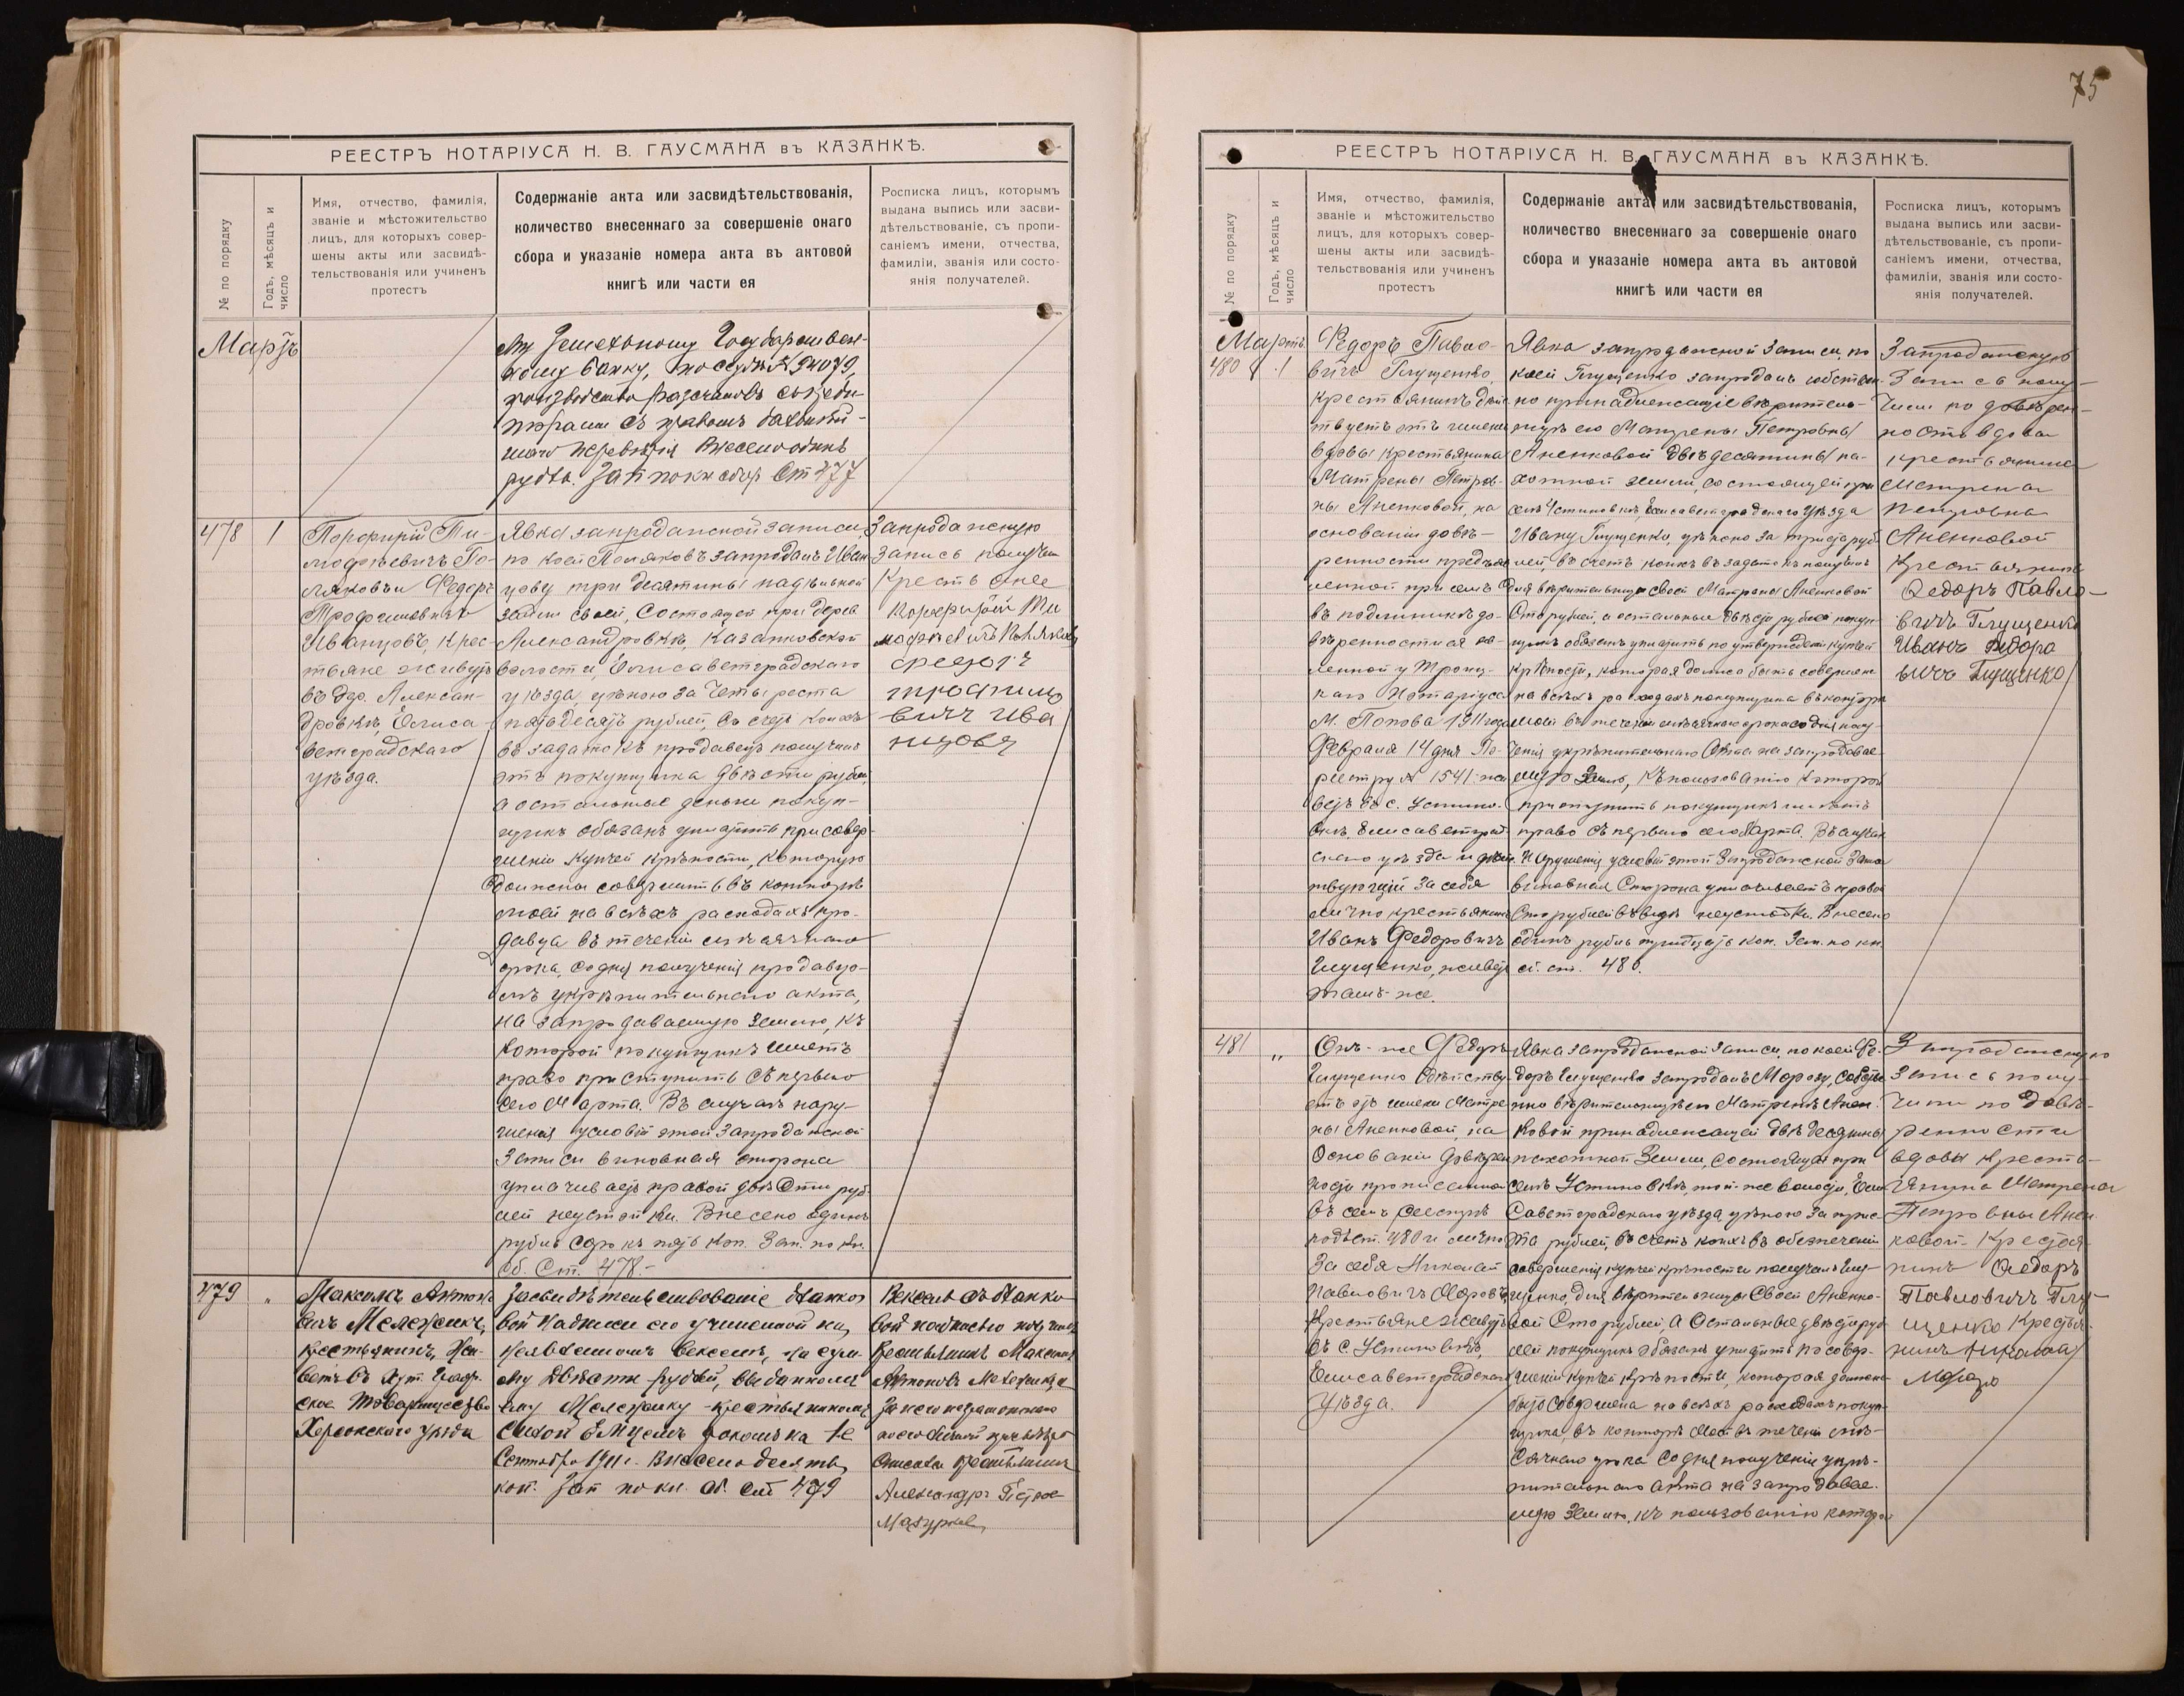 РЕЕСТРЪ НОТАРІУСА Н. В. ГАУСМАНА въ КАЗАНКѢ.
№ по порядку
Годъ, мѣсяцъ и
число
Имя, отчество, фамилія,
званіе и мѣстожительство
лицъ, для которыхъ совер-
шены акты или засвидѣ-
тельствованія или учиненъ
протестъ
Содержаніе акта или засвидѣтельствованія,
количество внесеннаго за совершеніе онаго
сбора и указаніе номера акта въ актовой
книгѣ или части ея
Росписка лицъ, которымъ
выдана выпись или засви-
дѣтельствованіе, съ пропи-
саніемъ имени, отчества,
фамиліи, званія или состо-
янія получателей.
Мартъ
Земельному Государствен-
ному банку, по ссудѣ № 94079,
производство разсчетовъ съ креди-
торами съ правомъ дальнѣй-
шаго передовѣрія Внесено одинъ
рубль. Зап. по кн. сбор. Ст 477
478
1
Порфирій Ти-
мофѣевичъ По-
ляковъ и Федоръ
Трофимовичъ
Иванцовъ, крес-
тьяне живутъ
въ дер. Алексан-
дровкѣ, Елиса-
ветградскаго
уѣзда.
Явка запродажной записи,
по коей Поляковъ запродалъ Иван-
цову три десятины надѣльной
земли своей, состоящей при дерев
Александровкѣ, Казанковской
волости, Елисаветградскаго
уѣзда, цѣною за четыреста
пятьдесятъ рублей, въ счетъ коихъ
въ задатокъ продавецъ получилъ
отъ покупщика двѣсти рублей,
а остальные деньги покуп-
щикъ обязанъ уплатить при совер-
шеніи купчей крѣпости, которую
должны совершить въ конторѣ
моей на всѣхъ расходахъ про-
давца въ теченіи мѣсячнаго
срока, со дня полученія продавцо-
мъ укрѣпительнаго акта,
на запродаваемую землю, къ
которой покупщикъ имѣетъ
право приступить съ перваго
сего Марта. Въ случаѣ нару-
шенія условій этой запродажной
записи виновная сторона
уплачиваетъ правой двѣсти руб-
лей неустойки. Внесено одинъ
рубль сорокъ пять коп. Зап. по кн.
сб. Ст. 478.-
Запродажную
запись получилъ
Крестьяне
Порфирій Ти
мофѣевичъ Поляковъ
Федоръ
трофимо
вичъ Ива
нцовъ
479
„
Максимъ Антоно-
вичъ Мележикъ,
крестьянинъ, жи-
ветъ въ хут.
ское Товарищество
Херсонскаго уѣзда
Засвидѣтельствованіе бланко-
вой надписи его учиненной на
вексель, на сум-
му двѣсти рублей, выданномъ
ему Мележику крестьяниномъ
срокомъ на 1е
Сентября 1911 г. Внесено десять
коп. Зап по кн. сб. ст 479
Вексель съ бланко
вой надписью получилъ
крестьянинъ Максимъ
Антоновъ Мележикъ а
за него неграмотнаго
по его личной просьбѣ
крестьянинъ
Александръ Петров
75
РЕЕСТРЪ НОТАРІУСА Н. В. ГАУСМАНА въ КАЗАНКѢ.
№ по порядку
Годъ, мѣсяцъ и
число
Имя, отчество, фамилія,
званіе и мѣстожительство
лицъ, для которыхъ совер-
шены акты или засвидѣ-
тельствованія или учиненъ
протестъ
Содержаніе акта или засвидѣтельствованія,
количество внесеннаго за совершеніе онаго
сбора и указаніе номера акта въ актовой
книгѣ или части ея
Росписка лицъ, которымъ
выдана выпись или засви-
дѣтельствованіе, съ пропи-
саніемъ имени, отчества,
фамиліи, званія или состо-
янія получателей.
Мартъ
480
1
Федоръ Павло-
вичъ Глущенко,
крестьянинъ дѣйс
твуетъ отъ имени
вдовы крестьянина
Матрены Петров-
ны Аненковой, на
основаніи довѣ-
ренности предъяв-
ленной при семъ
въ подлинникѣ до-
вѣренность яв-
ленной у Троиц-
каго Нотаріуса
М. Попова 1911 года
Февраля 14 дня По
реестру № 1541: жи
ветъ въ с. Устино-
вкѣ, Елисаветград-
скаго уѣзда и дѣйс
твующій за себя
лично крестьянинъ
Иванъ Федоровичъ
Глущенко, живетъ
тамъ-же.
Явка запродажной записи, по
коей Глущенко запродалъ собствен-
но принадлежащіе вѣритель-
ницѣ его Матрены Петровны
Аненковой двѣ десятины па-
хотной земли, состоящей при
селѣ Устиновкѣ, Елисаветградскаго уѣзда
Ивану Глущенко, цѣною за триста руб-
лей, въ счетъ коихъ въ задатокъ получилъ
для вѣрительницы своей Матрены Аненковой
сто рублей, а остальные двѣсти рублей покуп-
щикъ обязанъ уплатить по утвержденіи купчей
крѣпости, которая должна быть совершен-
на всѣхъ расходахъ покупщика въ конторѣ
моей въ теченіи мѣсячнаго срока со дня полу-
ченія укрѣпительнаго акта на запродавае-
мую землю, къ пользованію которой
приступить покупщикъ имѣетъ
право съ перваго сего Марта. Въ случаѣ
нарушенія условій этой запродажной записи
виновная сторона уплачиваетъ правой
сто рублей въ видѣ неустойки. Внесено
одинъ рубль тридцать коп. Зап. по кн.
сб. ст. 480.
Запродажную
запись полу-
чили по довѣрен-
ности вдова
крестьянина
Матрена
Петровна
Аненковой
крестьянинъ
Федоръ Павло-
вичъ Глущенко
Иванъ Федоро
вичъ Глущенко
481
„
Онъ-же Федоръ
Глущенко дѣйству-
етъ отъ имени Матре
ны Аненковой, на
основаніи довѣрен
ности прописанной
въ семъ реестрѣ
подъ ст. 480 и лично
за себя Николай
Павловичъ Морозъ,
крестьяне живутъ
въ с Устиновкѣ,
Елисаветградскаго
уѣзда.
Явка запродажной записи, по коей Фе-
доръ Глущенко запродалъ Морозу, собстве
нно вѣрительницѣ его Матренѣ Анен-
ковой принадлежащей двѣ десятины
пахотной земли, состоящей при
селѣ Устиновкѣ, той-же волости, Ели
саветградскаго уѣзда цѣною за трис-
та рублей, въ счетъ коихъ въ обезпеченіи
совершенія купчей крѣпости получилъ Глу-
щенко, для вѣрительницы своей Аненко-
вой сто рублей, а остальные двѣсти руб-
лей покупщикъ обязанъ уплатить по совер-
шеніи купчей крѣпости, которая должна
быть совершена на всѣхъ расходахъ покуп-
щика, въ конторѣ моей въ теченіи мѣ-
сячнаго срока со дня полученія укрѣ-
пительнаго акта на запродавае-
мую землю, къ пользованію которой
Запродажную
запись полу-
чили по довѣ-
ренности
вдовы кресть-
янина Матрены
Петровны Анен
ковой - Крестья-
нинъ Федоръ
Павловичъ Глу-
щенко Крестья-
нинъ Николай
Морозъ